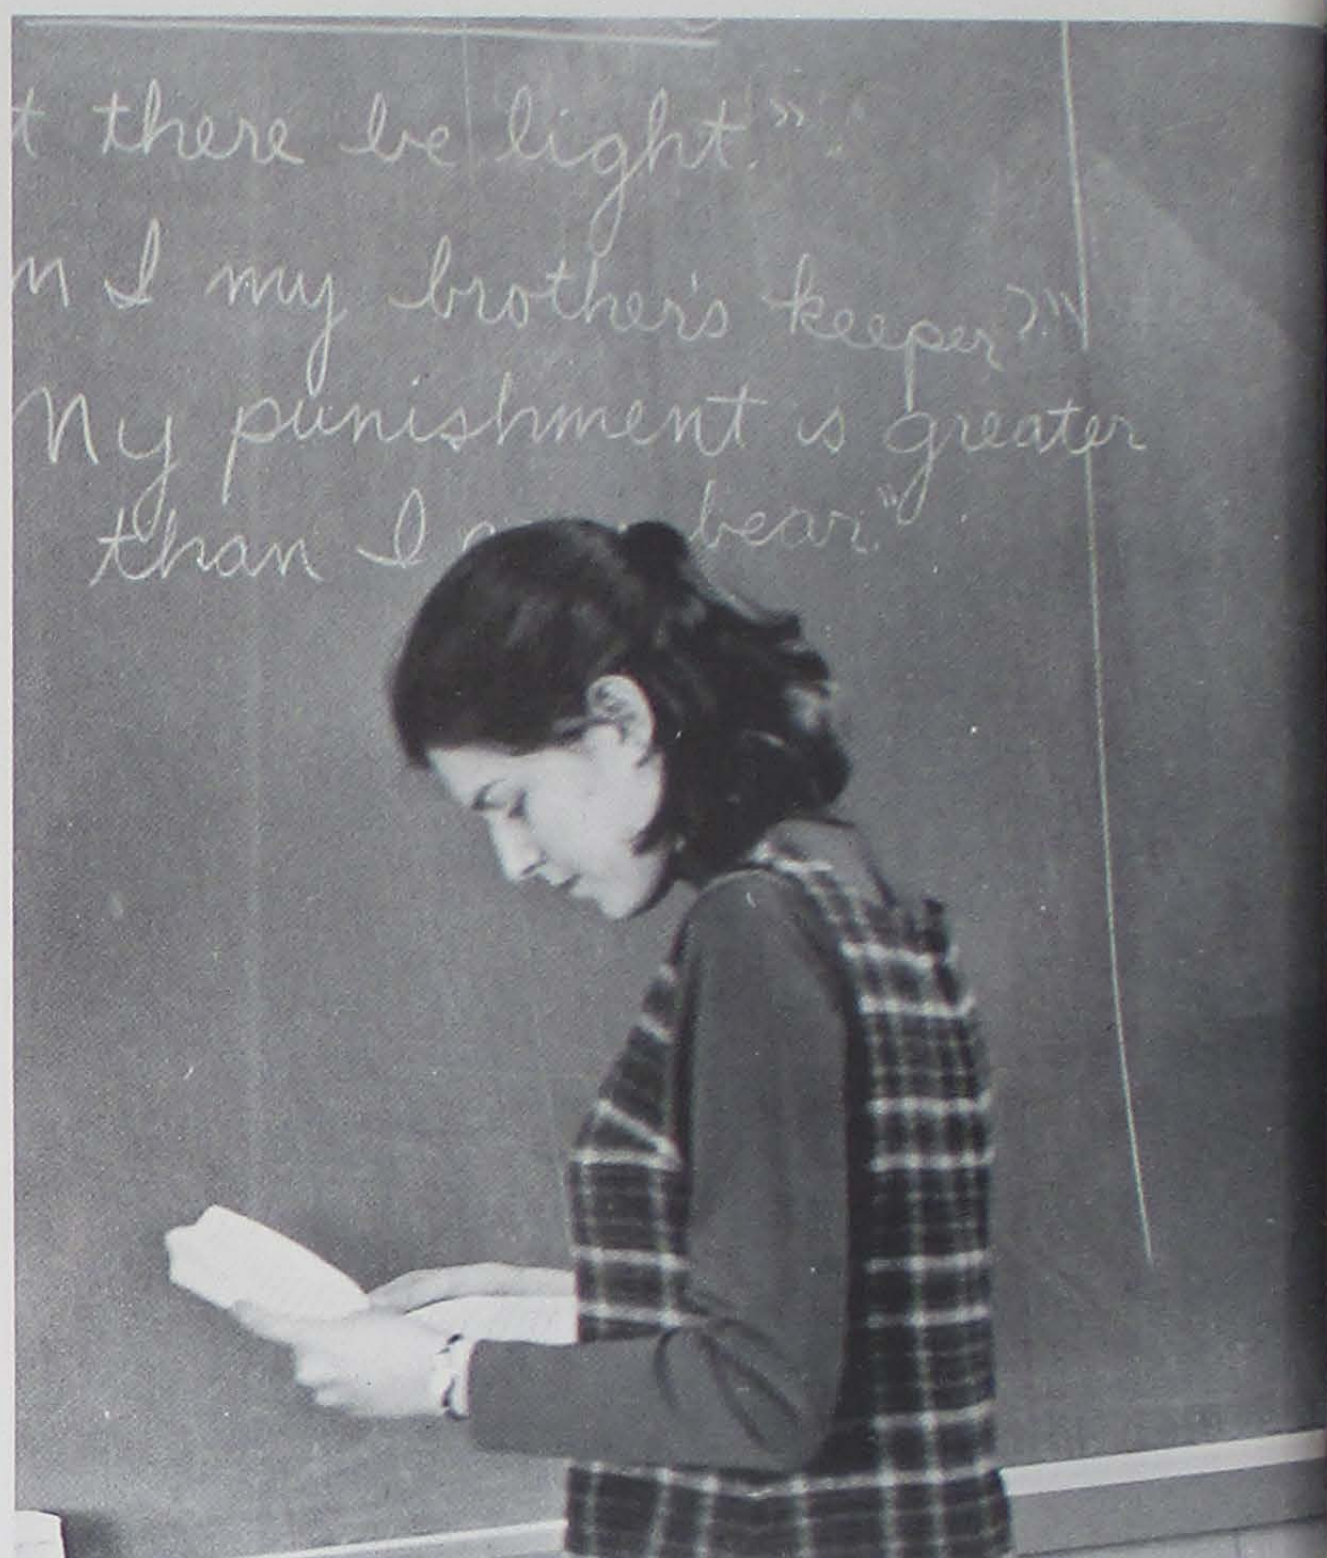 t there be light."
m I my brother's keeper?"
My punishment is greater
than I bear."